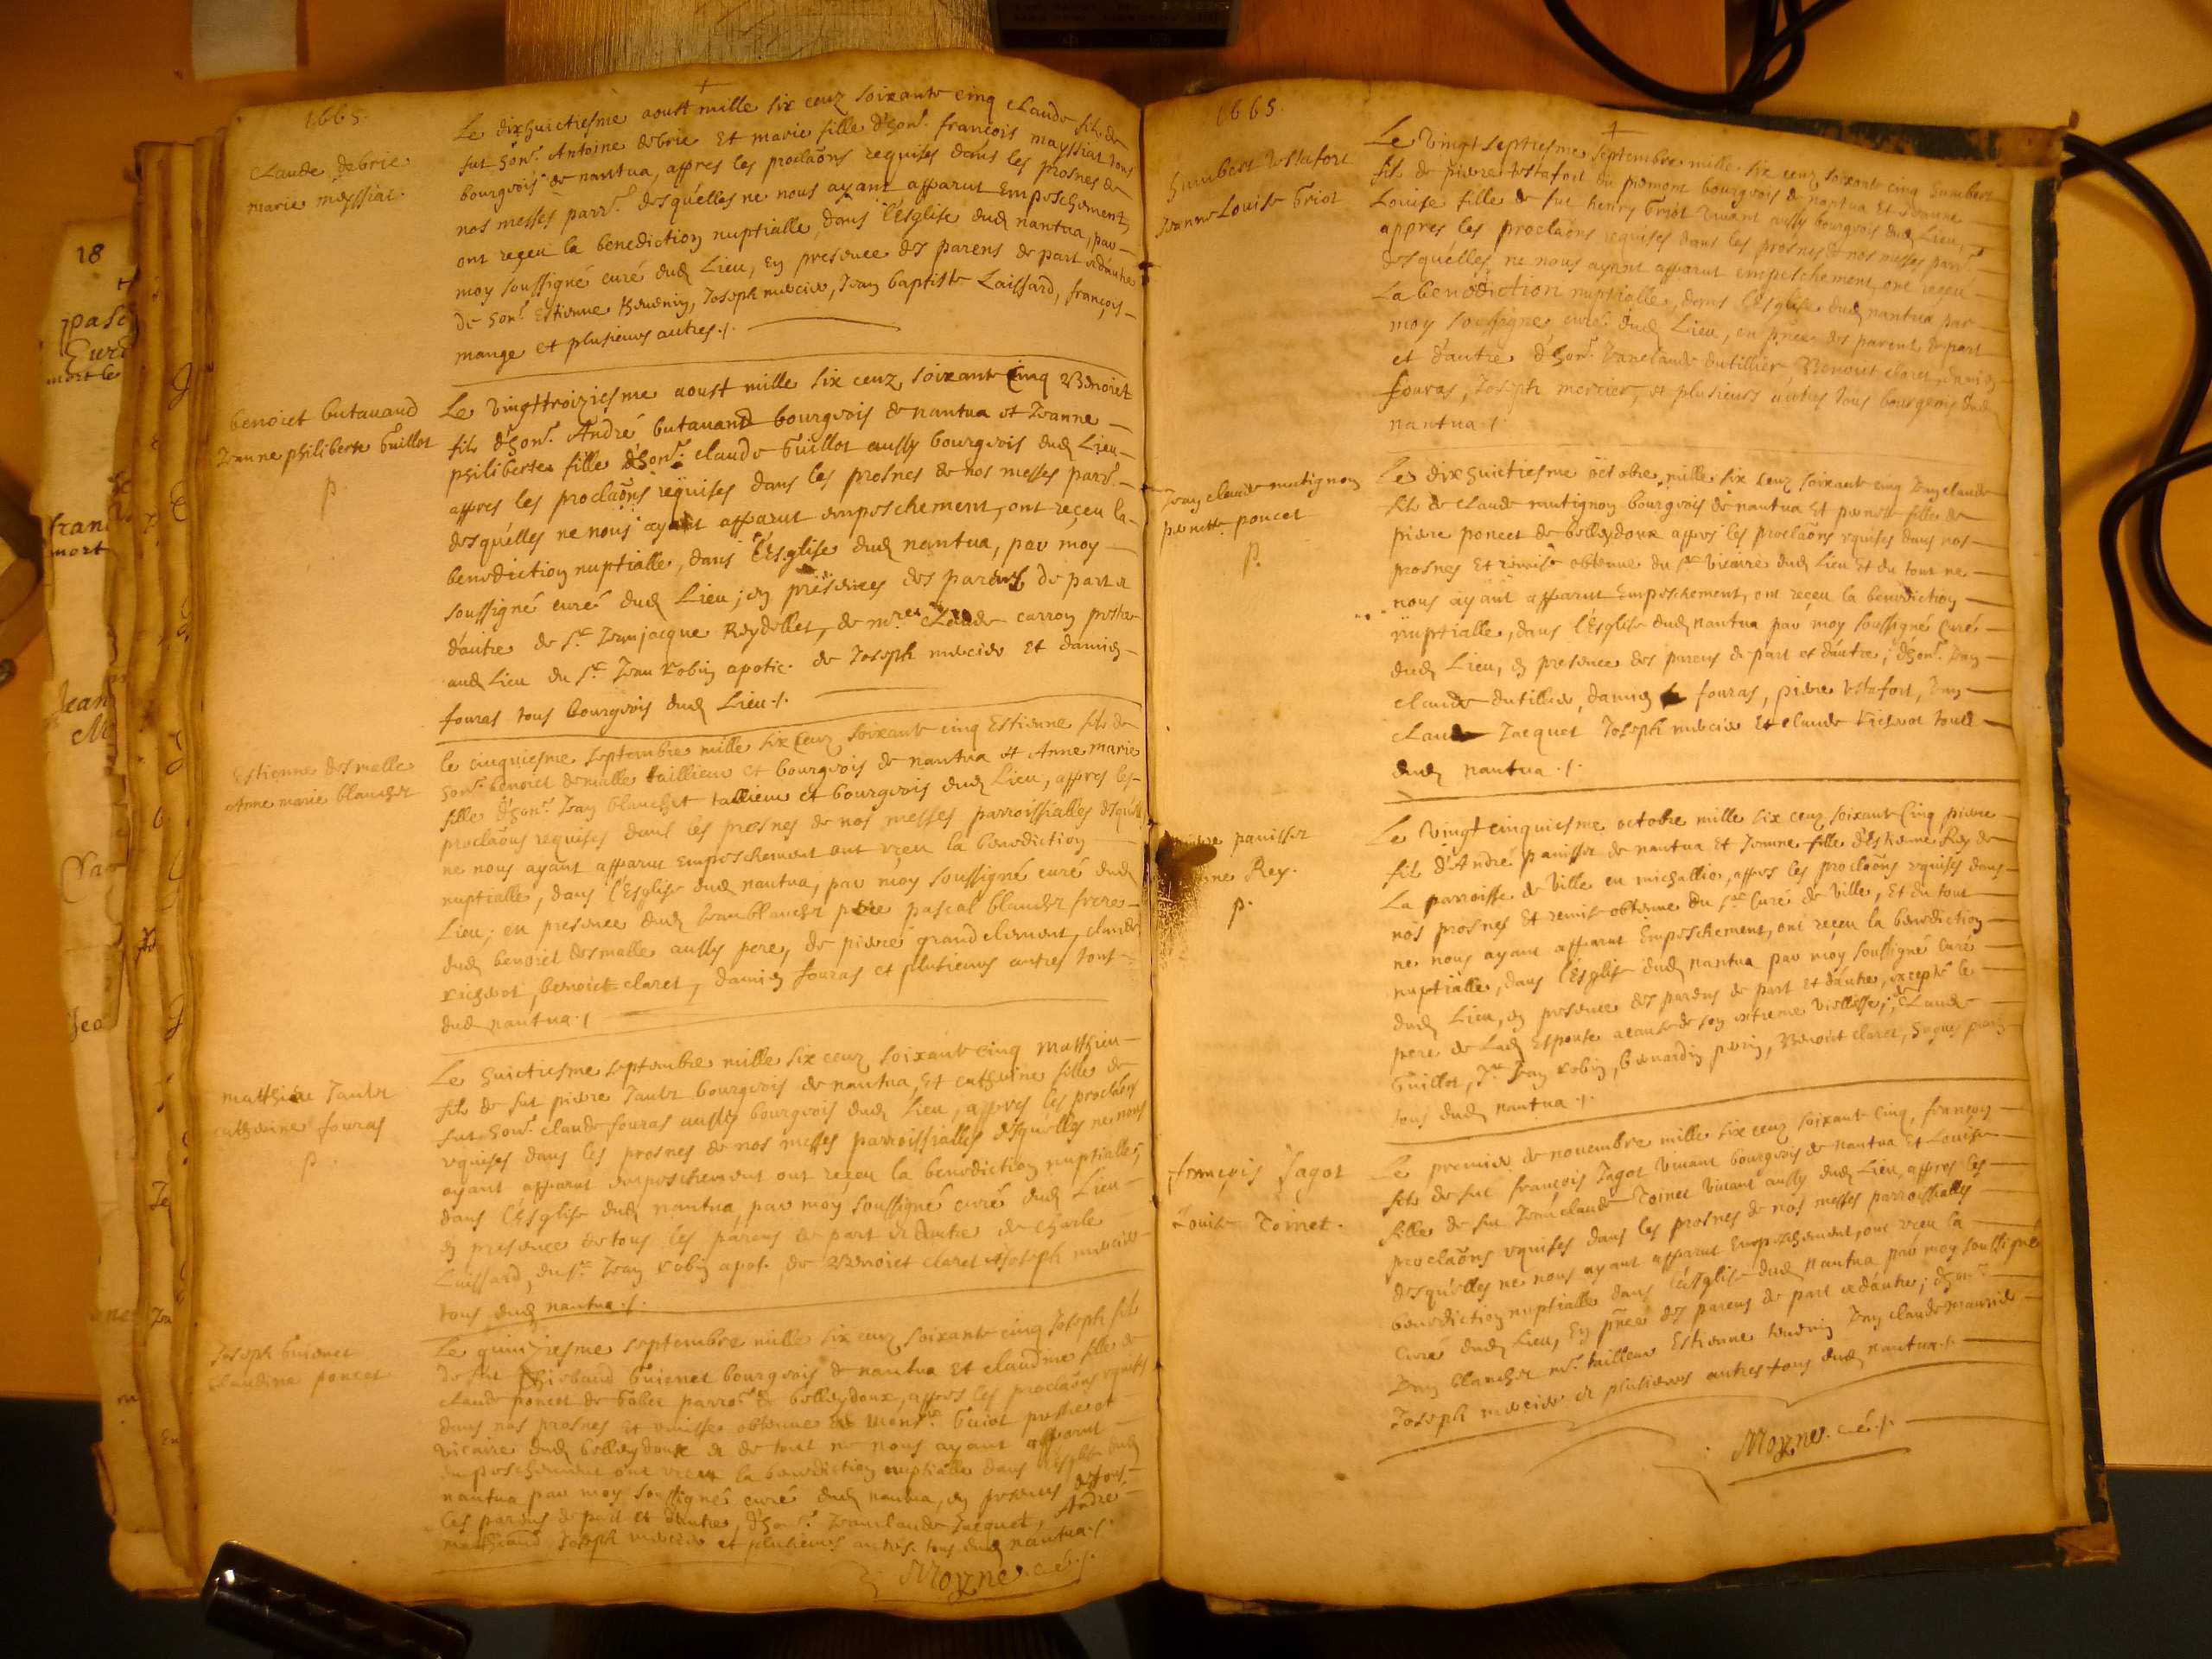 1665.
Claude debrie
marie meyssiat.
Le dixhuictiesme aoust mille six cenz soixante cinq Claude fils de
fut hon.^r Antoine debrie Et marie fille d'hon.^r françois mayssiat tous
bourgeois de nantua, appres les proclaõns requises dans les prosnes de
nos messes parr.^s desquelles ne nous ayant apparut Empeschement,
ont reçeu la benediction nuptialle, dans l'Esglise dud nantua, par
moy soussigné curé dud Lieu, En presence des parens de part et d'autre
de hon.^r Estienne Joseph mercier, Jean baptiste Laissard, françois
mange et plusieurs autres./.
benoict butauand
Jeanne philiberte Guillot
p.
Le vingttroiziesme aoust mille six cenz soixante Cinq Benoict
fils d'hon.^r André butauand bourgeois de nantua et Jeanne
philiberte fille d'hon.^r claude Guillot aussy bourgeois dud Lieu
appres les proclaõns requises dans les prosnes de nos messes parr.^s
desquelles ne nous ayant apparut empeschement, ont reçeu la
benediction nuptialle, dans l'Esglise dud nantua, par moy
soussigné curé dud Lieu; en présences des parens de part et
d'autre de s.^r Jeanjacque Reydellet, de m.^re Claude carron prestre
aud Lieu du s.^r Jean robin apotic. de Joseph mercier Et damien
fouras tous bourgeois dud Lieu./.
Estienne desmalle
Anne marie blanchet
le cinquiesme septembre mille six cenz soixante cinq Estienne fils de
hon.^r benoict demalle tailleur et bourgeois de nantua et Anne marie
fille d'hon.^r Jean blanchet tallieur et bourgeois dud Lieu, appres les
proclaõns requises dans les prosnes de nos messes parroissialles desquelles
ne nous ayant apparut Empeschement ont reçeu la benediction
nuptialle, dans l'Esglise dud nantua, par moy soussigné curé dud
Lieu; en presence dud Jean blanchet pere pascal blanchet frere
dud benoict desmalle aussy pere, de pierre grandclement, claude
richerot, benoict claret, damien fouras et plusieurs autres tous
dud nantua./.
matthieu Jantet
catherine fouras
p.
Le huictiesme septembre mille six cenz soixante cinq matthieu
fils de fut pierre Jantet bourgeois de nantua, Et catherine fille de
fut hon.^r claude fouras aussy bourgeois dud Lieu, appres les proclaõns
requises dans les prosnes de nos messes parroissialles desquelles ne nous
ayant apparut empeschement ont reçeu la benediction nuptialle,
dans l'Esglise dud nantua, par moy soussigné curé dud Lieu
en presence de tous les parens de part et d'autre de charle
Laissard, du s.^r Jean robin apot. de Benoict claret et Joseph mercier
tous dud nantua./.
Joseph Guienet
claudine poncet
Le quinziesme septembre mille six cenz soixante cinq Joseph fils
de fut Guienet bourgeois de nantua Et claudine fille de
claude poncet de parr.^se de belleydoux, appres les proclaõns requises
dans nos prosnes et remisse obtenue de mons.^r Guiot prestre et
vicaire dud belleydoux et de tout ne nous ayant apparut
empeschement ont reçeu la benediction nuptialle dans l'Esglise dud
nantua par moy soussigné curé dud nantua, en presences de tous
les parens de part et d'autre, d'hon.^r Jeanclaude Jacquet, André
Joseph mercier et plusieurs autres tous dud nantua./.
Moyne. c.é./.
1665.
humbert testafort
Jeanne Louise Griot
Le vingt septiesme septembre mille six cenz soixante cinq humbert
fils de pierre testafort du piemont bourgeois de nantua Et Jeanne
Louise fille de fut henry Griot vivant aussy bourgeois dud Lieu,
appres les proclaõns requises dans les prosnes de nos messes parr.^s
desquelles, ne nous ayant apparut empeschement, ont reçeu
La benediction nuptialle, dans l'Esglise dud nantua par
moy soussigné curé dud Lieu, en pñce des parens de part
et d'autre d'hon.^r Janclaude dutillier, Benoict claret, damien
fouras, Joseph mercier, et plusieurs autres tous bourgeois dud
nantua./.
Jean claude mutignon
pernette poncet
p.
Le dixhuictiesme octobre mille six cenz soixante cinq Jean claude
fils de claude mutignon bourgeois de nantua Et pernette fille de
pierre poncet de belleydoux appres les proclaõns requises dans nos
prosnes Et remise obtenue du s.^r vicaire dud Lieu Et du tout ne
nous ayant apparut Empeschement, ont reçeu la benediction
nuptialle, dans l'Esglise dud nantua par moy soussigné Curé
dud Lieu, en presence des parens de part et d'autre, d'hon.^r Jean
claude dutillier, damien fouras, pierre testafort, Jean
claude Jacquet Joseph mercier Et claude richerot tous
dud nantua./.
panisset
Rey.
p.
Le vingt cinquiesme octobre mille six cenz soixante Cinq pierre
fils d'André panisset de nantua Et Jeanne fille d'Estienne Rey de
La parroisse de ville en michallie, appres les proclaõns requises dans
nos prosnes Et remise obtenue du s.^r Curé de ville, Et du tout
ne nous ayant apparut Empeschement, ont reçeu la benediction
nuptialle, dans l'Esglise dud nantua par moy soussigné Curé
dud Lieu, en presence des parens de part et d'autre, excepté le
pere de Lad Espouse a cause de son extreme viellesse; de Claude
Guillot, s.^r Jean robin, bernardin Benoict claret, hugue
tous dud nantua./.
françois Jagot
Louise Toinet.
Le premier de nouembre mille six cenz soixante Cinq, françois
fils de fut françois Jagot vivant bourgeois de nantua Et Louise
fille de fut Jeanclaude Toinet vivant aussy dud Lieu, appres les
proclaõns requises dans les prosnes de nos messes parroissialles
desquelles ne nous ayant apparut Empeschement, ont reçeu la
benediction nuptialle dans l'Esglise dud nantua par moy soussigné
Curé dud Lieu, En pñce des parens de part et d'autre; d'hon.^r
Jean blanchet m.^e tailleur Estienne Jean claude
Joseph mercier et plusieurs autres tous dud nantua./.
Moyne. c.é./.
18
fran
mort
Jean